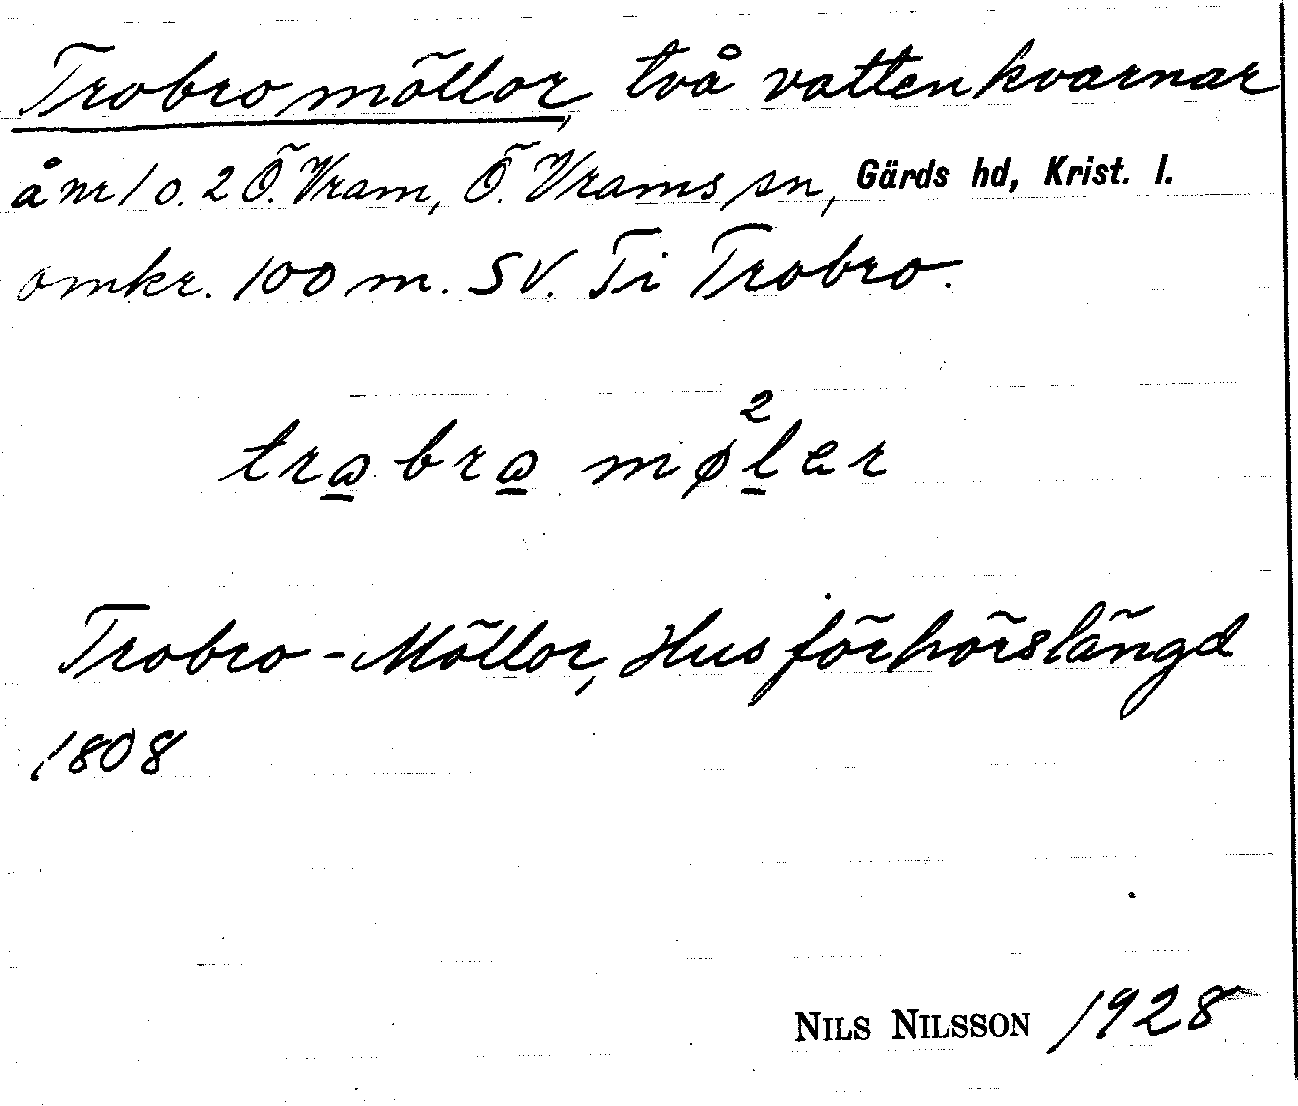 Trobro möllor, två vattenkvarnar
å nr 1 o. 2 Ö. Vram, Ö. Vrams sn, Gärds hd, Krist. l.
omkr. 100 m. SV. Ti Trobro.
trɷbrɷ mø²ler
Trobro-Möllor, Husförhörslängd
1808
NILS NILSSON 1928